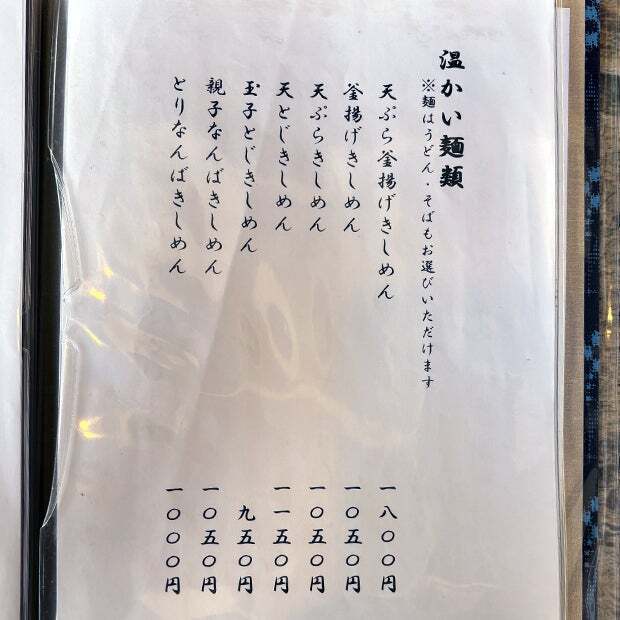 温かい麺類
※麺はうどん・そばもお選びいただけます
天ぷら釜揚げきしめん 一八〇〇円
釜揚げきしめん 一〇五〇円
天ぷらきしめん 一〇五〇円
天とじきしめん 一一五〇円
玉子とじきしめん 九五〇円
親子なんばきしめん 一〇五〇円
とりなんばきしめん 一〇〇〇円